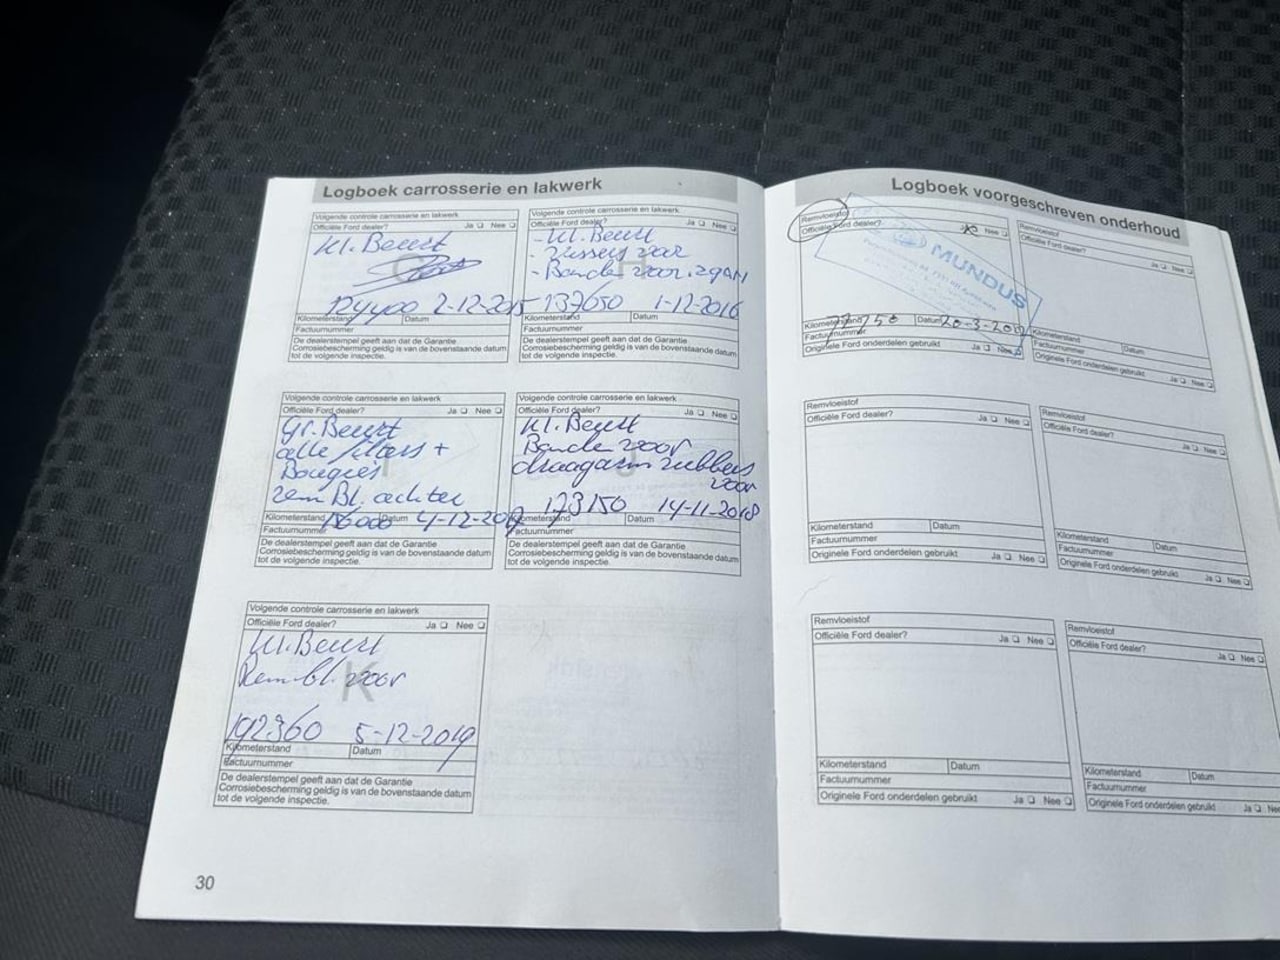 Logboek carrosserie en lakwerk
Volgende controle carrosserie en lakwerk
Officiële Ford dealer? Ja Nee
Kl. Beurt
G
124400 2-12-2015
Kilometerstand Datum
Factuurnummer
De dealerstempel geeft aan dat de Garantie
Corrosiebescherming geldig is van bovenstaande datum
tot de volgende inspectie.
Volgende controle carrosserie en lakwerk
Officiële Ford dealer? Ja Nee
- Kl. Beurt
- voor
- Banden voor
H
137650 1-12-2016
Kilometerstand Datum
Factuurnummer
De dealerstempel geeft aan dat de Garantie
Corrosiebescherming geldig is van bovenstaande datum
tot de volgende inspectie.
Volgende controle carrosserie en lakwerk
Officiële Ford dealer? Ja Nee
Gr. Beurt
alle filters +
Bougies
rem Bl. achter
4-12-2017
Kilometerstand Datum
Factuurnummer
De dealerstempel geeft aan dat de Garantie
Corrosiebescherming geldig is van bovenstaande datum
tot de volgende inspectie.
Volgende controle carrosserie en lakwerk
Officiële Ford dealer? Ja Nee
Kl. Beurt
Banden voor
draagarm rubbers
voor
173150 14-11-2018
Kilometerstand Datum
Factuurnummer
De dealerstempel geeft aan dat de Garantie
Corrosiebescherming geldig is van bovenstaande datum
tot de volgende inspectie.
Volgende controle carrosserie en lakwerk
Officiële Ford dealer? Ja Nee
Kl. Beurt
Rem bl. voor
K
192360 5-12-2019
Kilometerstand Datum
Factuurnummer
De dealerstempel geeft aan dat de Garantie
Corrosiebescherming geldig is van bovenstaande datum
tot de volgende inspectie.
30
Logboek voorgeschreven onderhoud
Remvloeistof
Officiële Ford dealer? Nee
MUNDUS
Kilometerstand Datum
Factuurnummer
Originele Ford onderdelen gebruikt Ja Nee
Remvloeistof
Officiële Ford dealer? Ja Nee
Kilometerstand Datum
Factuurnummer
Originele Ford onderdelen gebruikt Ja Nee
Remvloeistof
Officiële Ford dealer? Ja Nee
Kilometerstand Datum
Factuurnummer
Originele Ford onderdelen gebruikt Ja Nee
Remvloeistof
Officiële Ford dealer? Ja Nee
Kilometerstand Datum
Factuurnummer
Originele Ford onderdelen gebruikt Ja Nee
Remvloeistof
Officiële Ford dealer? Ja Nee
Kilometerstand Datum
Factuurnummer
Originele Ford onderdelen gebruikt Ja Nee
Remvloeistof
Officiële Ford dealer? Ja Nee
Kilometerstand Datum
Factuurnummer
Originele Ford onderdelen gebruikt Ja Nee